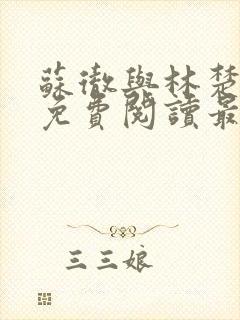 蘇徹與林楚
免費閱讀最
三三娘